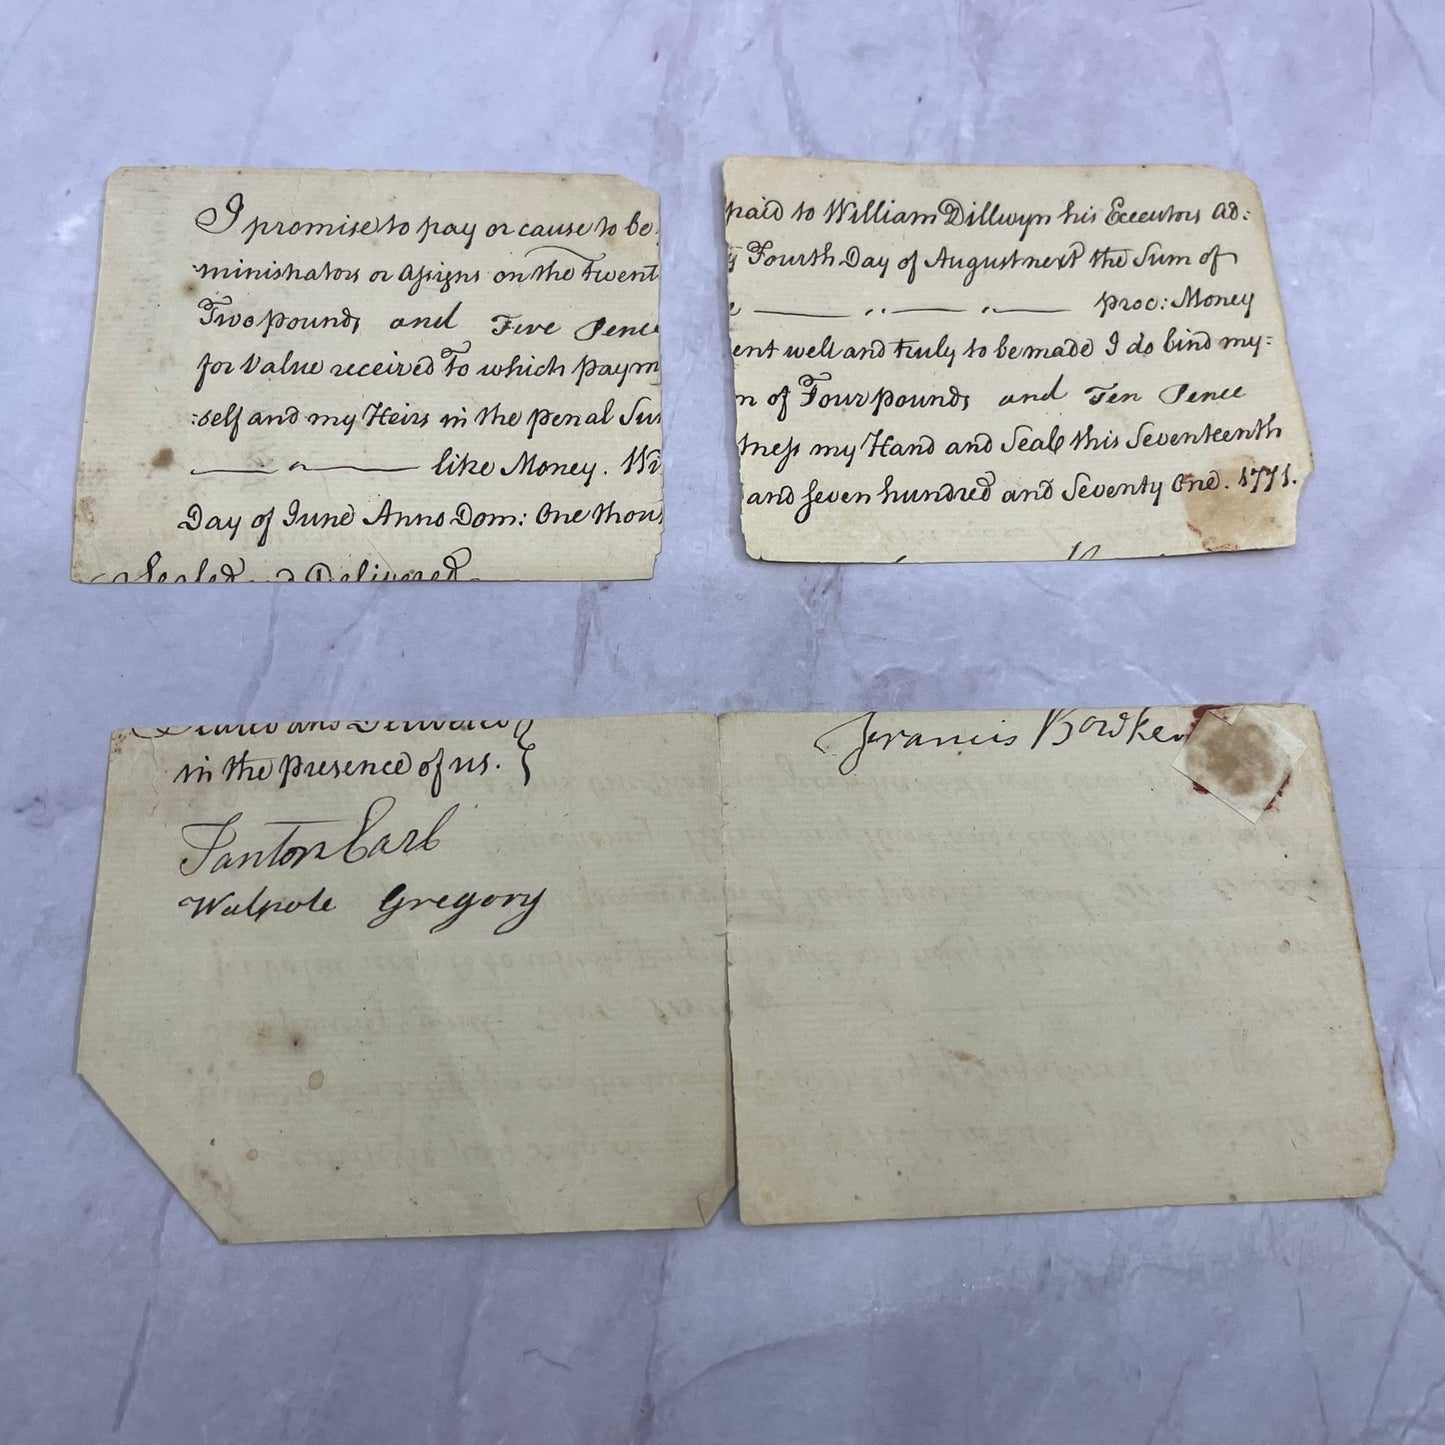 I promise to pay or cause to be
paid to William Dillwyn his Executors Ad:
ministrators or Assigns on the Twent
y Fourth Day of August next the Sum of
Two pounds and Five Pence
proc: Money
for Value received To which paym
ent well and truly to be made I do bind my=
:self and my Heirs in the penal Sum
m of Four pounds and Ten Pence
like Money. Wi
tness my Hand and Seal this Seventeenth
Day of June Anno Dom: One thous
and seven hundred and Seventy One. 1771.
Sealed and Delivered
in the presence of us.
Francis Bowker
Tanton Earl
Walpole Gregory